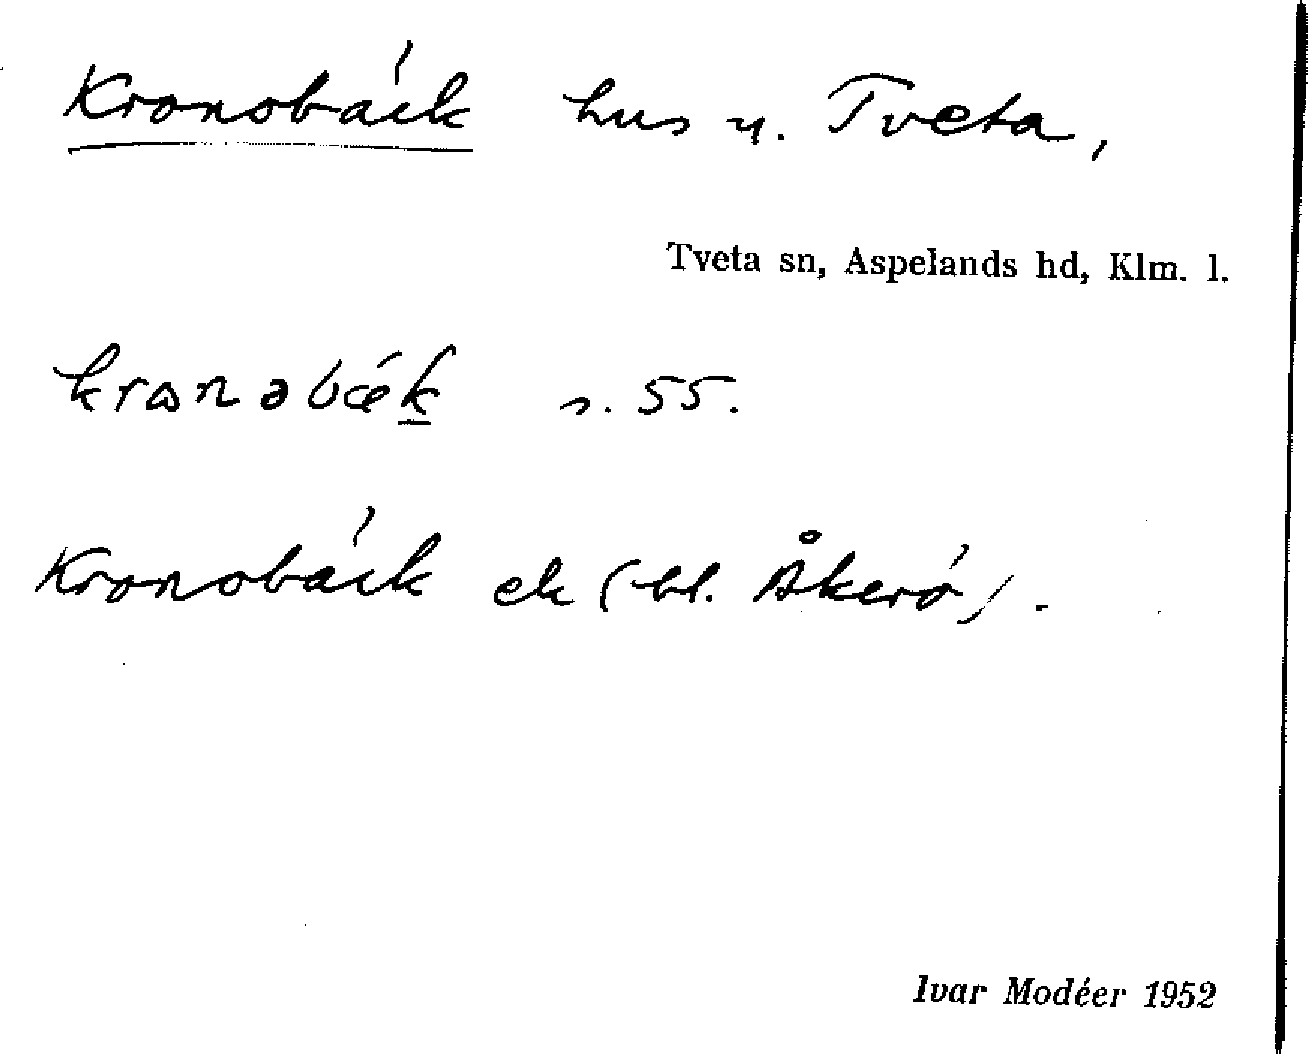 Kronobäck hus u. Tveta,
Tveta sn, Aspelands hd, Klm. l.
s. 55.
Kronobäck ek (bl. Åkerö).
Ivar Modéer 1952